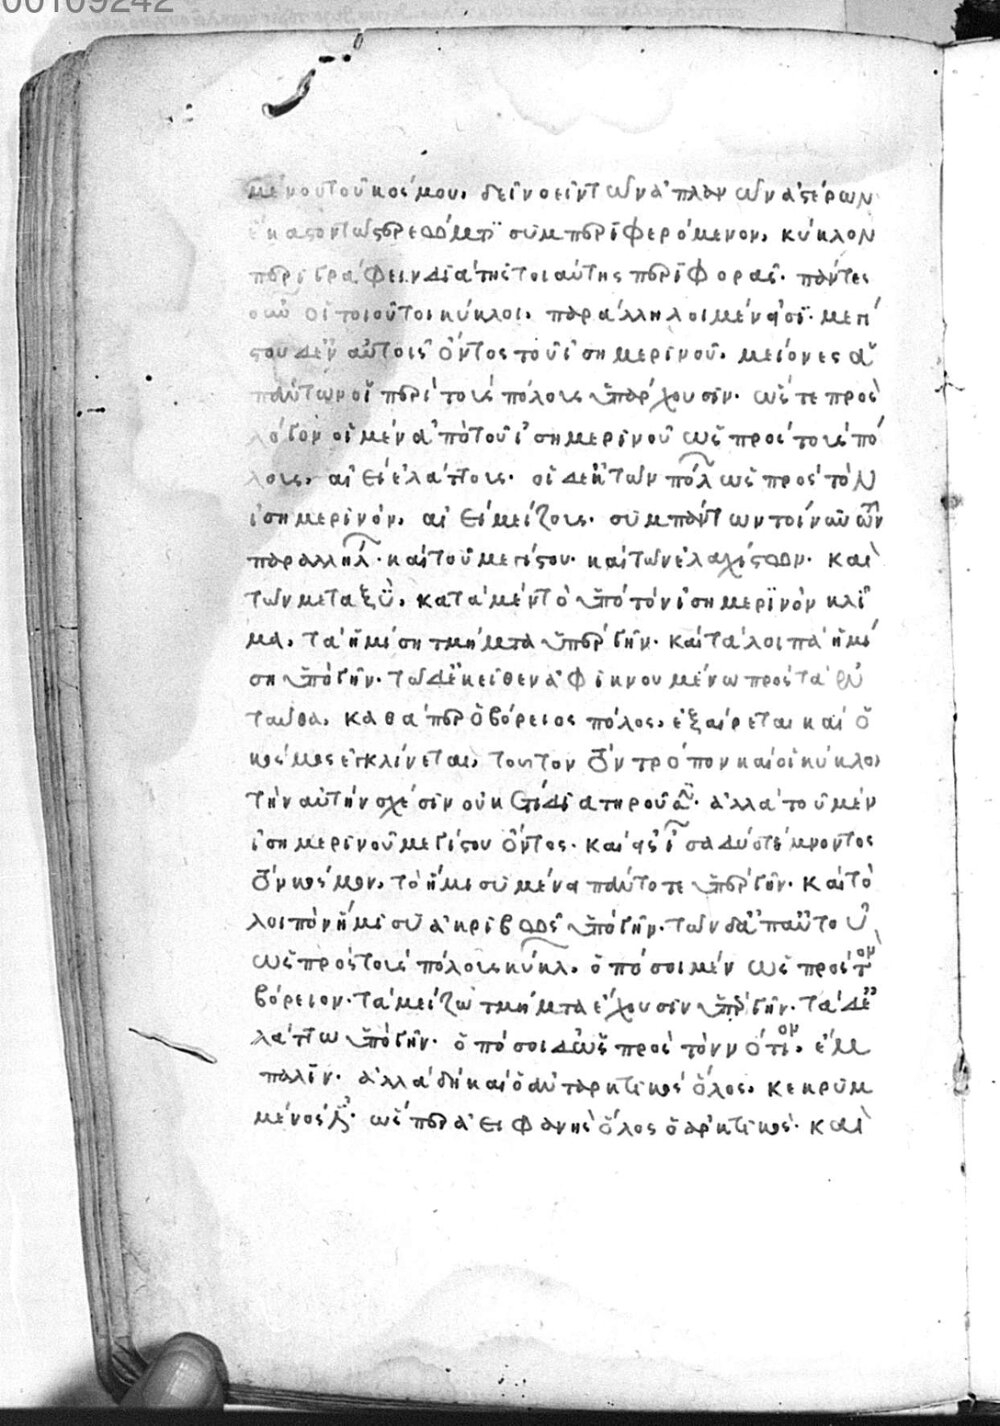 00109242
μένου τοῦ κόσμου, δεῖ νοεῖν τῶν ἀπλανῶν ἀστέρων
ἕκαστον τῶ στερεώματι συμπεριφερόμενον, κύκλον
περιγράφειν διὰ τῆς τοιαύτης περιφορᾶς. πάντες
οὖν οἱ τοιοῦτοι κύκλοι, παράλληλοι μέν εἰσι. μεγί
στου δὲ ἐν αὐτοῖς ὄντος τοῦ ἰσημερινοῦ, μείονες ἁ
πάντων οἱ περὶ τοὺς πόλους ὑπάρχουσιν. ὥστε πρὸς
λόγον οἱ μὲν ἀπὸ τοῦ ἰσημερινοῦ ὡς πρὸς τοὺς πό
λους, αἰεὶ ἐλάττους. οἱ δὲ ἐκ τῶν πόλ ὡς πρὸς τὸν
ἰσημερινόν, αἰεὶ μείζους. συμπάντων τοίνυν τῶν
παραλλήλ. καὶ τοῦ μεγίστου. καὶ τῶν ἐλαχίστων. καὶ
τῶν μεταξὺ, κατὰ μὲν τὸ ὑπὸ τὸν ἰσημερινὸν κλί
μα, τὰ ἡμίση τμήματα ὑπὲρ γῆν. καὶ τὰ λοιπὰ ἡμί
ση ὑπὸ γῆν. τῶ δὲ ἐκεῖθεν ἀφικνουμένω πρὸς τὰ ἐν
ταῦθα, καθάπερ ὁ βόρειος πόλος, ἐξαίρεται καὶ ὁ
κόσμος ἐγκλίνεται, τοῦτον τὸν τρόπον καὶ οἱ κύκλοι
τὴν αὐτὴν σχέσιν οὐκ ἔτι διατηροῦσιν. ἀλλὰ τοῦ μὲν
ἰσημερινοῦ μεγίστου ὄντος. καὶ εἰς ἴσα δύο τέμνοντος
τὸν κόσμον, τὸ ἥμισυ μὲν ἁπάντοτε ὑπὲρ γῆν. καὶ τὸ
λοιπὸν ἥμισυ ἀκριβῶς ὑπὸ γῆν. τῶν δ' ἀπ' αὐτοῦ
ὡς πρὸς τοὺς πόλους κύκλ, ὁπόσοι μὲν ὡς πρὸς τὸν
βόρειον. τὰ μείζω τμήματα ἔχουσιν ὑπὲρ γῆν. τὰ δὲ ἐ
λάττω ὑπὸ γῆν. ὁπόσοι δὲ ὡς πρὸς τὸν νότιον, ἔμ
παλιν. ἀλλὰ δὴ καὶ ὁ ἀνταρκτικὸς ὅλος, κεκρυμ
μένος ἐστὶ. ὥσπερ ἀειφανὴς ὅλος ὁ ἀρκτικός. καὶ